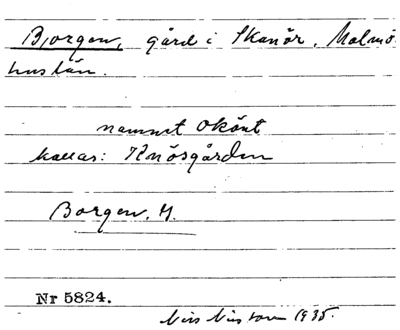 Bjorgen, gård i Skanör, Malmö
hus län.
namnet okänt
kallas: Knösgården
Borgen, H.
Nr 5824.
Nils Nilsson 1935.